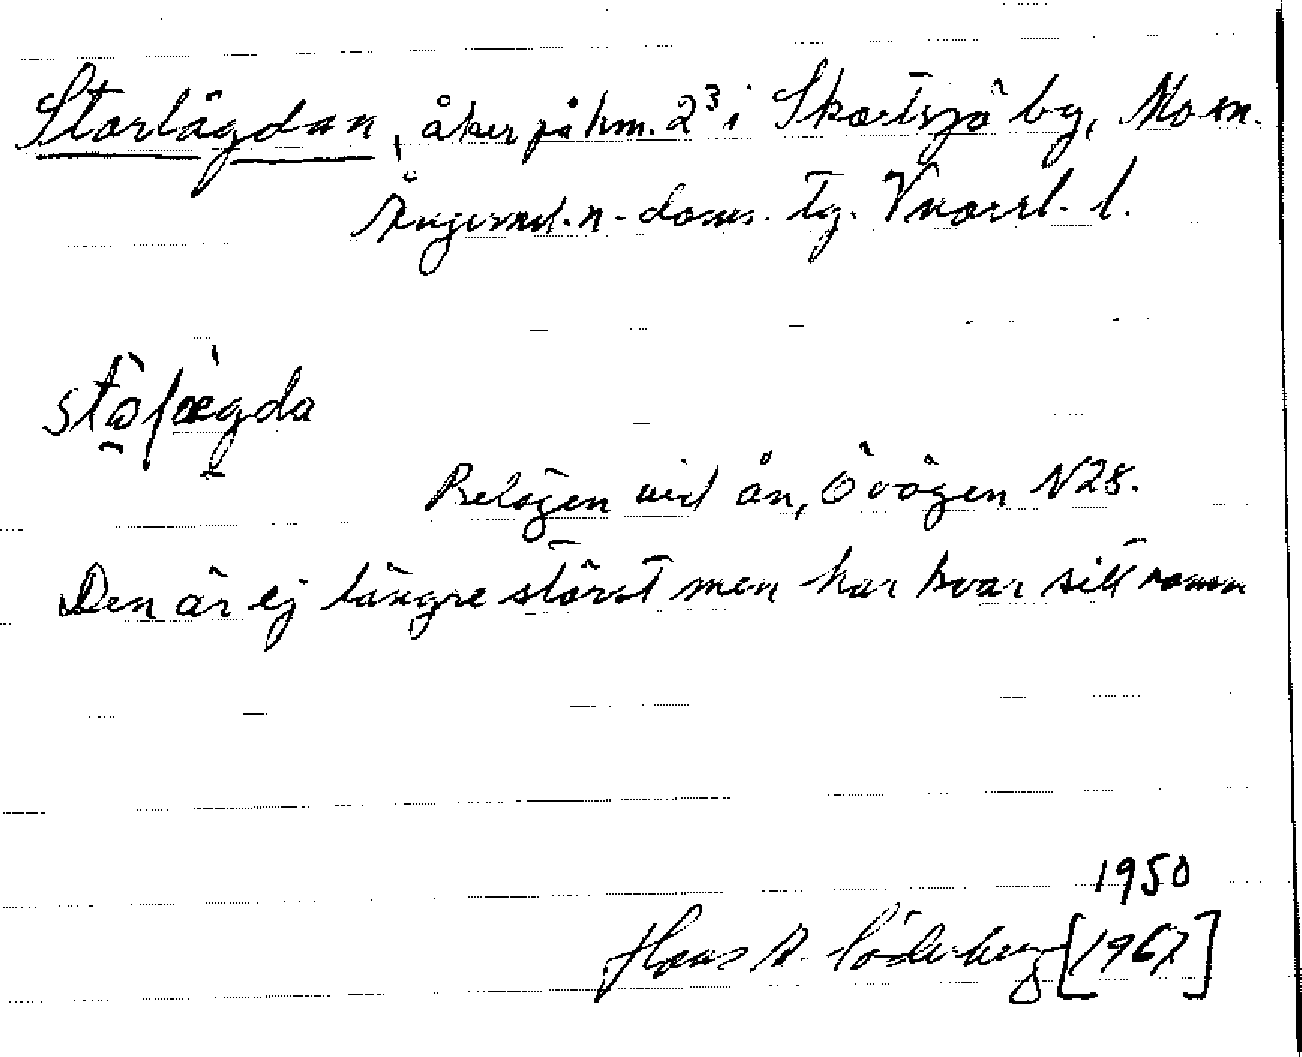 Storlägdan, åker på hm. 2³ i Skortsjö by, Mo sn.
Ångerml. n. doms. tg. Vnorrl. l.
Belägen vid ån, Ö vägen N28.
Den är ej längre störst men har kvar sitt namn
1950
Hans A. Söderberg [1967]